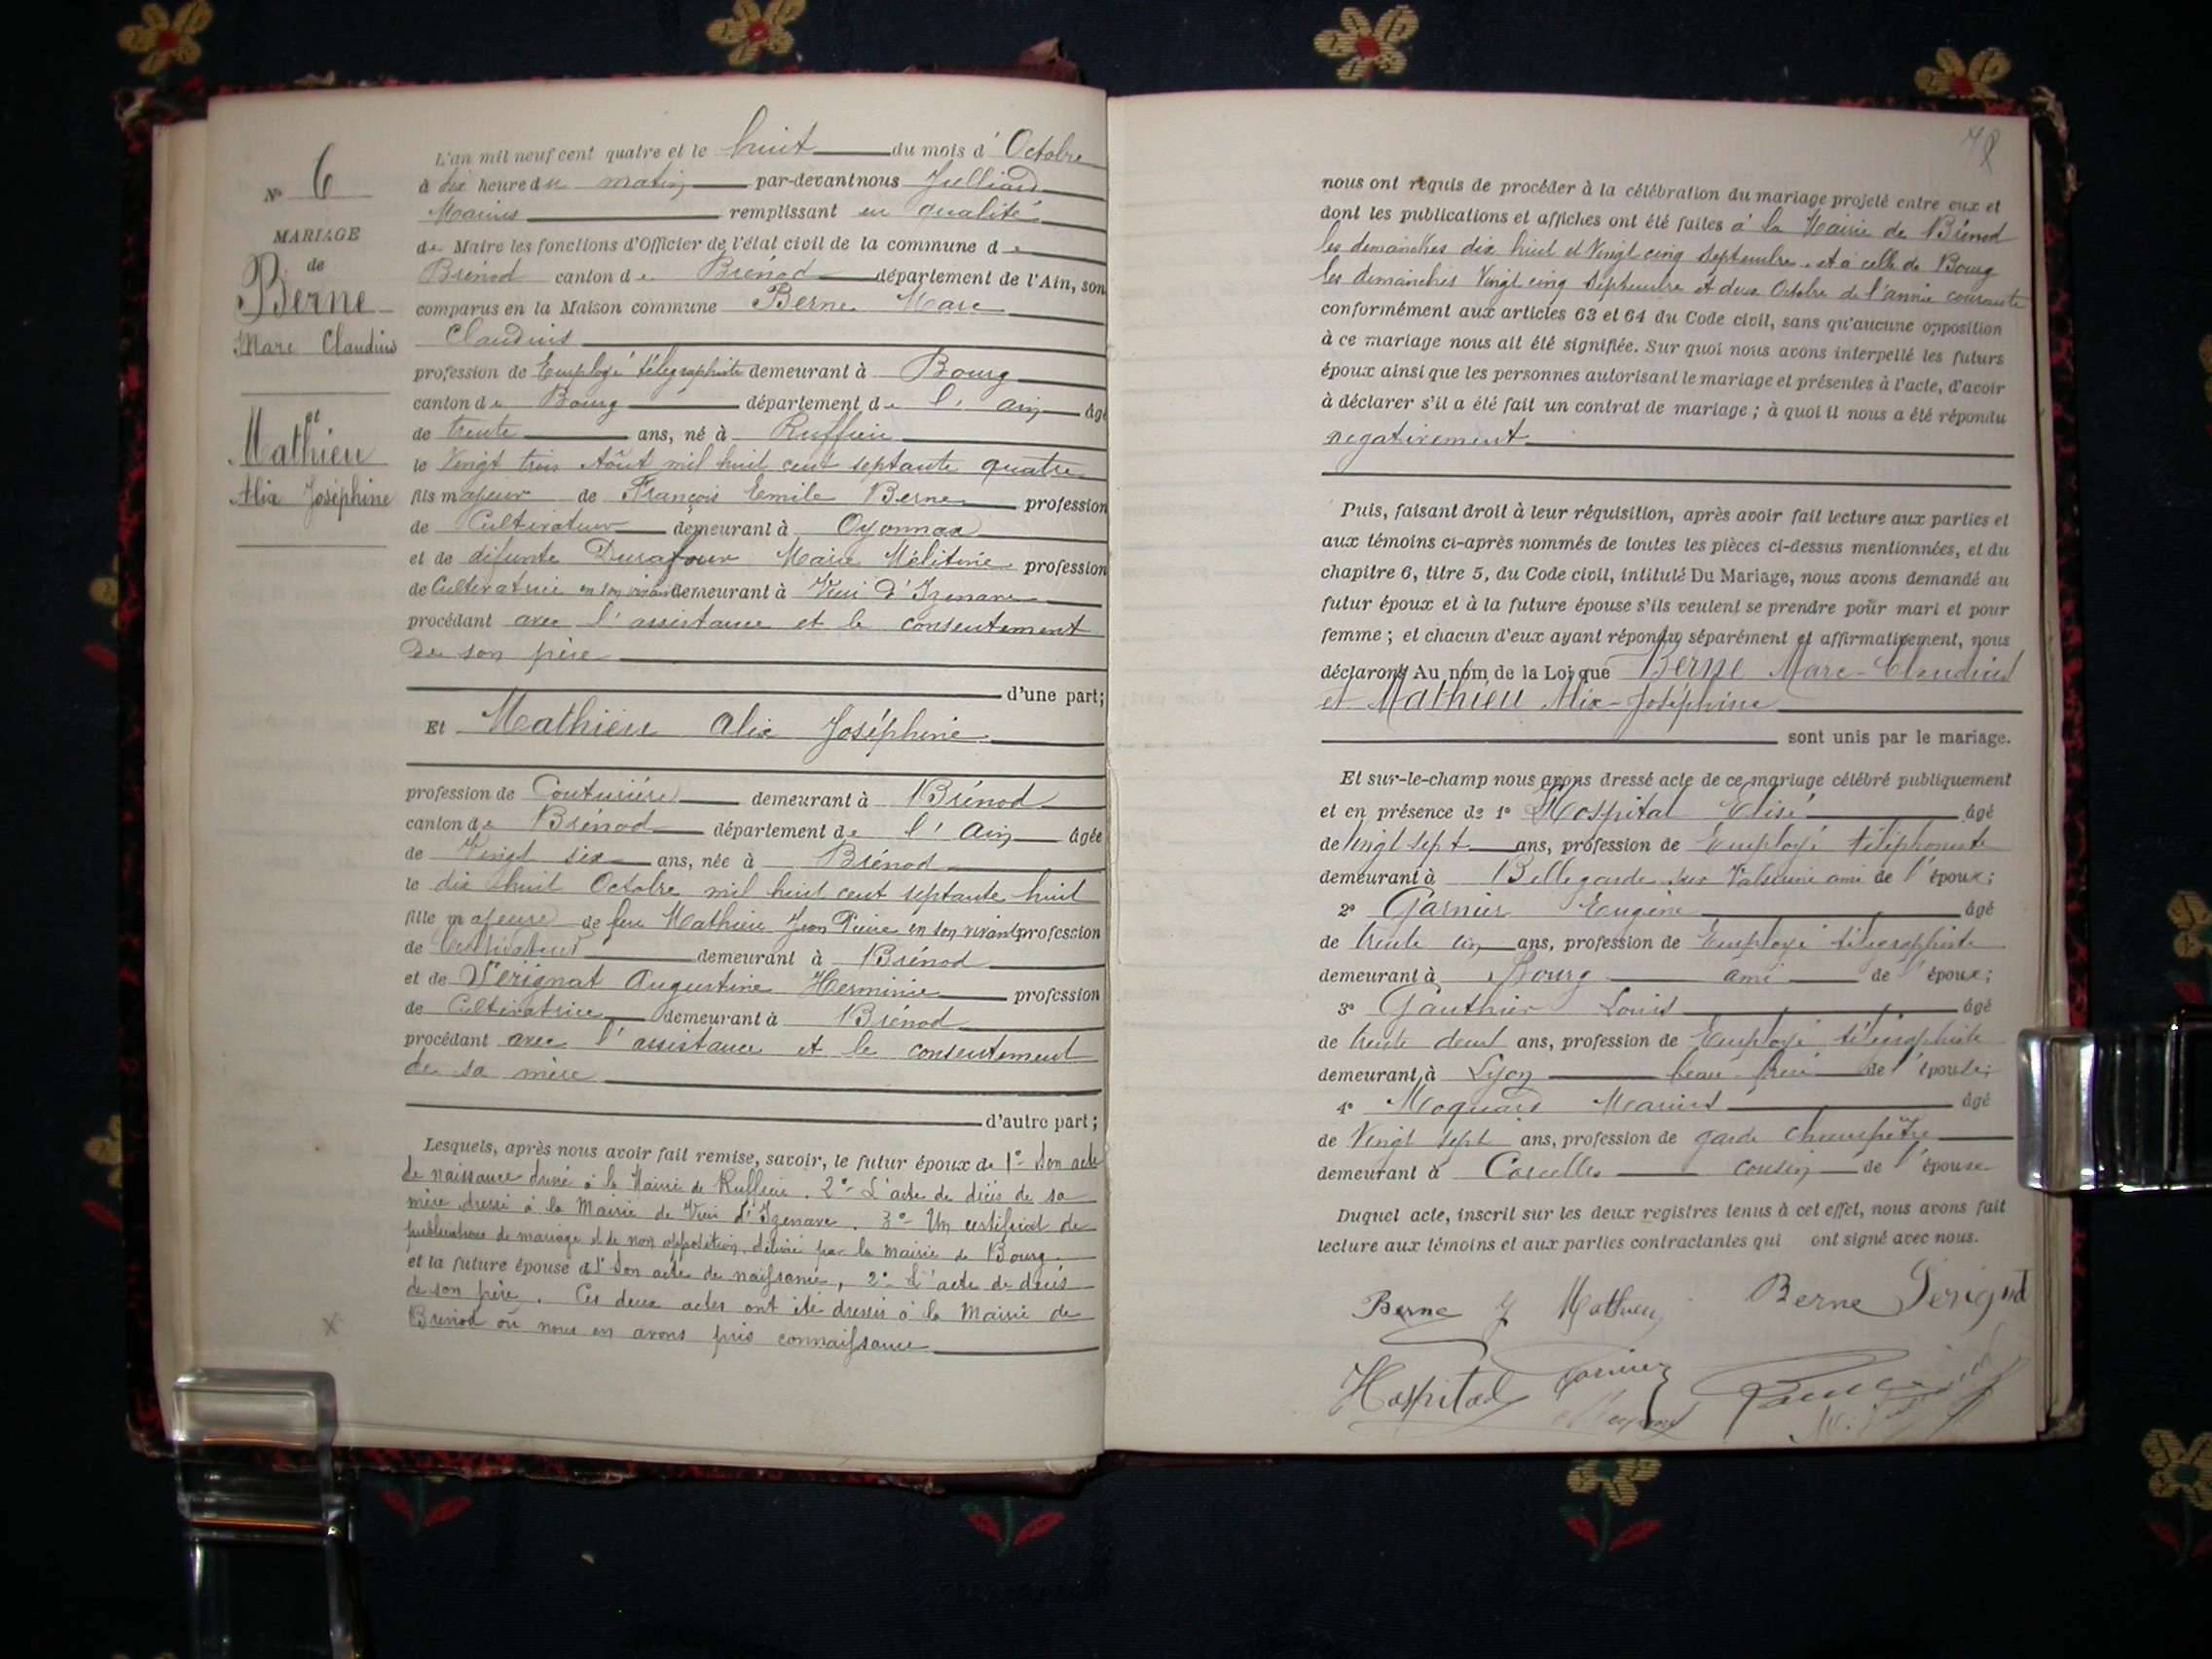 N° 6
MARIAGE
de
Berne
Marc Claudius
et
Mathieu
Alix Joséphine
L'an mil neuf cent quatre et le huit du mois d' Octobre
à dix heures du matin par-devant nous Julliard
Marius remplissant en qualité
de Maire les fonctions d'Officier de l'état civil de la commune de
Brénod canton de Brénod département de l'Ain, sont
comparus en la Maison commune Berne Marc
Claudius
profession de Employé télégraphiste demeurant à Bourg
canton de Bourg département de l'Ain âgé
de trente ans, né à Ruffieu
le Vingt trois Août mil huit cent septante quatre
fils majeur de François Emile Berne profession
de Cultivateur demeurant à Oyonnax
et de défunte Durafour Marie Mélitine profession
de Cultivatrice en son vivant demeurant à Vieu d'Izenave
procédant avec l'assistance et le consentement
de son père
d'une part;
Et Mathieu Alix Joséphine
profession de Couturière demeurant à Brénod
canton de Brénod département de l'Ain âgée
de Vingt six ans, née à Brénod
le dix huit Octobre mil huit cent septante huit
fille majeure de feu Mathieu Jean Pierre en son vivant profession
de Cultivateur demeurant à Brénod
et de Sérignat Augustine Herminie profession
de Cultivatrice demeurant à Brénod
procédant avec l'assistance et le consentement
de sa mère
d'autre part;
Lesquels, après nous avoir fait remise, savoir, le futur époux de 1° Son acte
de naissance dressé à la Mairie de Ruffieu. 2° L'acte de décès de sa
mère dressé à la Mairie de Vieu d'Izenave. 3° Un certificat de
publications de mariage et de non opposition, délivré par la mairie de Bourg
et la future épouse de 1° Son acte de naissance, 2° L'acte de décès
de son père. Ces deux actes ont été dressés à la Mairie de
Brénod où nous en avons pris connaissance
nous ont requis de procéder à la célébration du mariage projeté entre eux et
dont les publications et affiches ont été faites à la Mairie de Brénod
les dimanches dix huit et Vingt cinq Septembre, et à celle de Bourg
les dimanches Vingt cinq Septembre et deux Octobre de l'année courante
conformément aux articles 63 et 64 du Code civil, sans qu'aucune opposition
à ce mariage nous ait été signifiée. Sur quoi nous avons interpellé les futurs
époux ainsi que les personnes autorisant le mariage et présentes à l'acte, d'avoir
à déclarer s'il a été fait un contrat de mariage; à quoi il nous a été répondu
négativement
Puis, faisant droit à leur réquisition, après avoir fait lecture aux parties et
aux témoins ci-après nommés de toutes les pièces ci-dessus mentionnées, et du
chapitre 6, titre 5, du Code civil, intitulé Du Mariage, nous avons demandé au
futur époux et à la future épouse s'ils veulent se prendre pour mari et pour
femme; et chacun d'eux ayant répondu séparément et affirmativement, nous
déclarons Au nom de la Loi que Berne Marc-Claudius
et Mathieu Alix-Joséphine
sont unis par le mariage.
Et sur-le-champ nous avons dressé acte de ce mariage célébré publiquement
et en présence de 1° Hospital Elisé âgé
de Vingt sept ans, profession de Employé téléphoniste
demeurant à Bellegarde sur Valserine ami de l'époux;
2° Garnier Eugène âgé
de trente cinq ans, profession de Employé télégraphiste
demeurant à Bourg ami de l'époux;
3° Gauthier Louis âgé
de trente deux ans, profession de Employé télégraphiste
demeurant à Lyon beau-frère de l'épouse;
4° Moquard Marius âgé
de Vingt sept ans, profession de garde champêtre
demeurant à Corcelles cousin de l'épouse
Duquel acte, inscrit sur les deux registres tenus à cet effet, nous avons fait
lecture aux témoins et aux parties contractantes qui ont signé avec nous.
Berne J Mathieu Berne Sérignat
Hospital Garnier